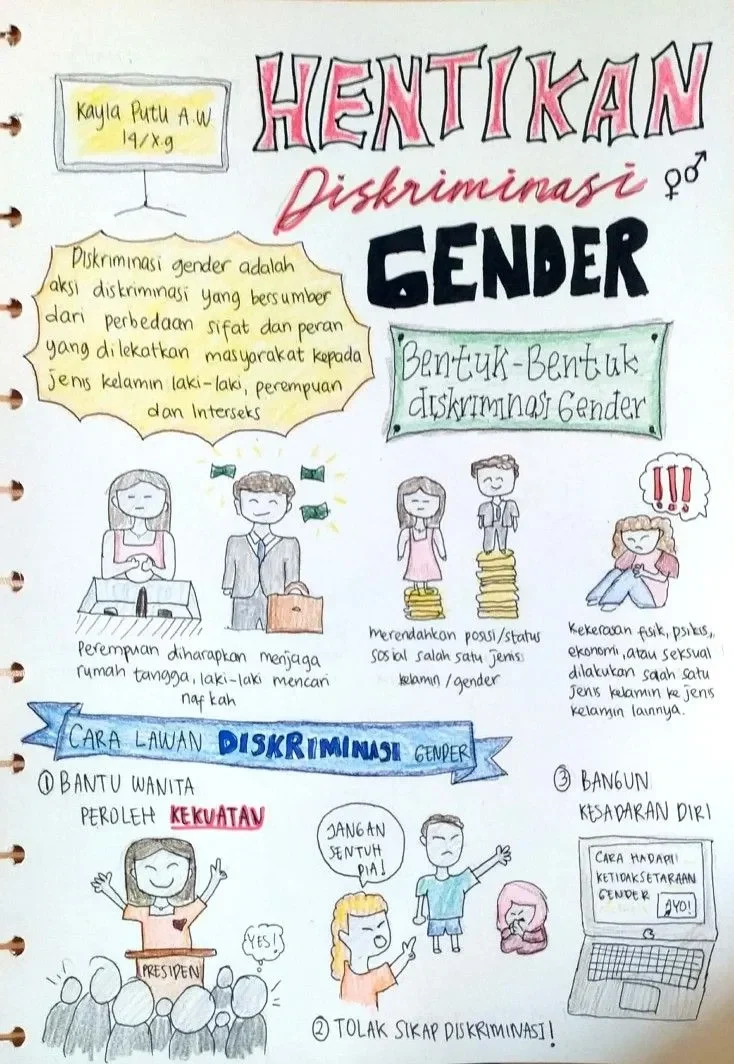 Kayla Putu A.W
14/X.9
HENTIKAN
Diskriminasi
GENDER
Diskriminasi gender adalah
aksi diskriminasi yang bersumber
dari perbedaan sifat dan peran
yang dilekatkan masyarakat kepada
jenis kelamin laki-laki, perempuan
dan Interseks
Bentuk-Bentuk
diskriminasi Gender
!!!
Perempuan diharapkan menjaga
rumah tangga, laki-laki mencari
nafkah
merendahkan posisi/status
sosial salah satu jenis
kelamin/gender
Kekerasan fisik, psikis,
ekonomi, atau seksual
dilakukan salah satu
jenis kelamin ke jenis
kelamin lainnya.
CARA LAWAN DISKRIMINASI GENDER
① BANTU WANITA
PEROLEH KEKUATAN
YES!
PRESIDEN
JANGAN
SENTUH
DIA!
② TOLAK SIKAP DISKRIMINASI!
③ BANGUN
KESADARAN DIRI
CARA HADAPI
KETIDAKSETARAAN
GENDER
AYO!